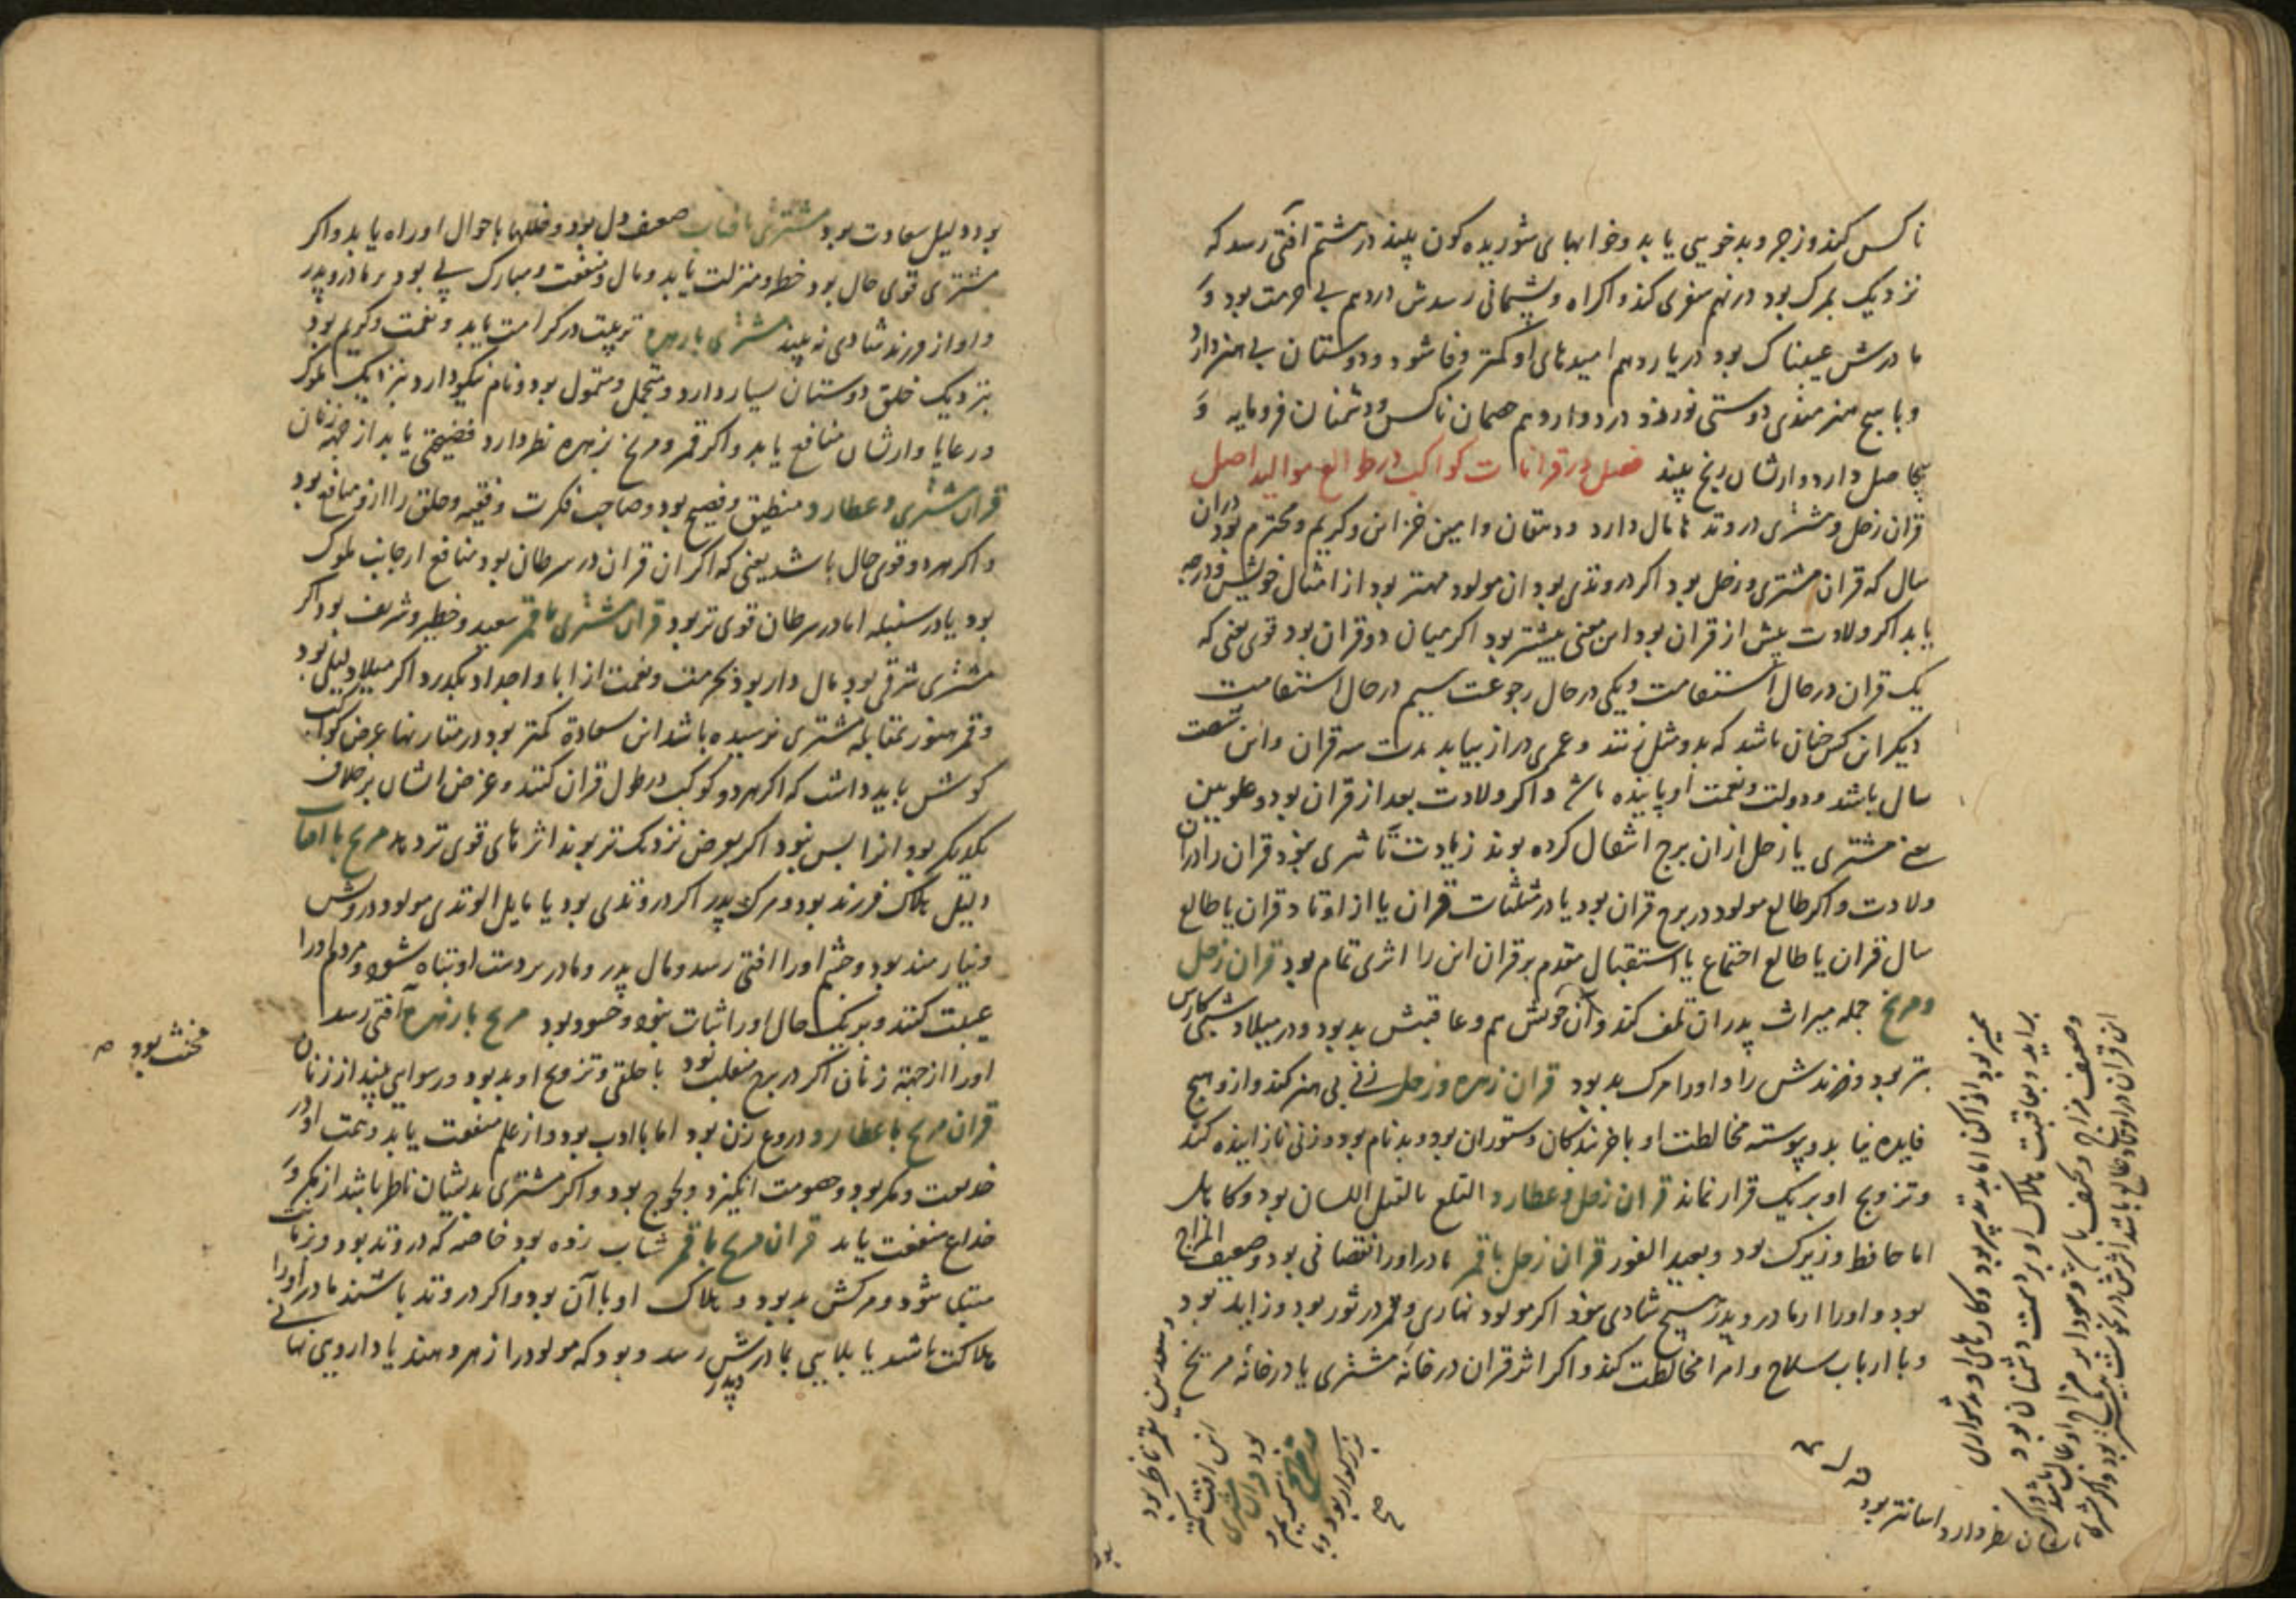 ناکس کند و زجر و بدخویی یابد و خوابهای شوریده کون بیند در هشتم آفتی رسد که
نزدیک بمرک بود در نهم سفری کند و اکراه و پشیمانی رسدش در دهم بی حرمت بود و
مادرش عیبناک بود در یازدهم امیدهای او کمتر وفا شود و دوستان بی هنر دارد
و با هیچ هنرمندی دوستی نورزد در دوازدهم خصمان ناکس و دشمنان فرومایه و
بیحاصل دارد و ازیشان رنج بیند فصل در قرانات کواکب در طوالع موالید اصل
قران زحل و مشتری در وتدها مال دارد و دهقان و امین خزاین و کریم و محترم بود و در ان
سال که قران مشتری و زحل بود اکر در وتدی بود ان مولود مهتر بود از امثال خویش و درجه
یابد اکر ولادت پیش از قران بود این معنی بیشتر بود اکر میان دو قران بود قوی یعنی که
یک قران در حال استقامت و یکی در حال رجوعت سیم در حال استقامت
دیکر این کس چنان باشد که بدو مثل زنند و عمری دراز بیابد مدت سه قران و این شصت
سال باشد و دولت و نعمت او پاینده باشد و اکر ولادت بعد از قران بود و علویین
یعنی مشتری یا زحل از ان برج انتقال کرده بوند زیادت تاثیری نبود قران را در ان
ولادت و اکر طالع مولود در برج قران بود یا در مثلثات قران یا از اوتاد قران یا طالع
سال قران یا طالع اجتماع یا استقبال مقدم بر قران این را اثری تمام بود قران زحل
و مریخ جمله میراث پدران تلف کند و آن خویش هم و عاقبتش بد بود و در میلاد شبی کارش
بتر بود و فرزندش راد و او را مرک بد بود قران زهره و زحل زنی بی هنر کند و ازو هیچ
فایده نیابد و پیوسته مخالطت او با خربندکان و ستوران بود و بدنام بود و زنی نازاینده کند
و تزویج او بر یک قرار نماند قران زحل و عطارد ثقیل اللسان بود و کاهل
اما حافظ و زیرک بود و بعید الغور قران زحل با قمر مادر او را نقصانی بود و ضعیف المزاج
بود و او را از مادر و پدر هیچ شادی نبود اکر مولود نهاری و قمر در ثور بود و زاید بود
و با ارباب سلاح و امرا مخالطت کند و اکر اثر قران در خانه مشتری یا در خانه مریخ
و سعدین بقمر ناظر بود
این آفت کمتر
بود قران مشتری
و مریخ
بزرکوار بود و با
صح
این قران در اوتاد طالع باشد اثرش در نحوست بیشتر بود و اکر مشتری
و ضعیف مزاج و نحیف باشد و سودا بر مزاج او غالب
براید و بعاقبت هلاک او بر دست دشمنان بود
نظر دارد اسانتر بود
بود دلیل سعادت بود مشتری با افتاب ضعیف دل بود و خللها باحوال او راه یابد و اکر
مشتری قوی حال بود خط و منزلت یابد و مال و منفعت و مبارک پی بود بر مادر و پدر
و او از فرزند شادی نه بیند مشتری با زهره تربیت در کرامت یابد و نعمت و کریم بود
بنزدیک خلق دوستان بسیار دارد و متجمل و متمول بود و نام نیکو دارد و بنزدیک ملوک
و رعایا و ازیشان منافع یابد و اکر قمر و مریخ بزهره نظر دارد فضیحتی یابد از جهة زنان
قران مشتری و عطارد منطیق و فصیح بود و صاحب فکرت و فقیه و خلق را ازو منافع بود
و اکر هردو قوی حال باشد یعنی که اکر ان قران در سرطان بود منافع از جانب ملوک
بود یا در سنبله اما در سرطان قوی تر بود قران مشتری با قمر سعید و خطیر و شریف بود اکر
مشتری شرقی بود مال دار بود بحرمت و نعمت از ابا و اجداد بکذرد اکر میلاد لیلی بود
و قمر هنوز بمقابله مشتری نرسیده باشد این سعادة کمتر بود در مقارنها بعرض کواکب
کوشش باید داشت که اکر هردو کوکب در طول قران کنند و عرض ایشان بر خلاف
یکدیکر بود انرا بس نبود اکر بعرض نزدیک تر بوند اثرهای قوی تر دهد مریخ با افتاب
دلیل هلاک فرزند بود و مرک پدر اکر در وتدی بود یا مایل الوتدی مولود درویش
و نیازمند بود و چشم او را افتی رسد و مال پدر و مادر بر دست او تباه شود و مردم او را
غیبت کنند و بر یک حال او را ثبات نبود و حسود بود مریخ با زهره آفتی رسد
او را از جهة زنان اکر در برج منقلب بود با خلقی و تزویج او بد بود و رسوایی بیند از زنان
مخنث بود
قران مریخ با عطارد دروغ زن بود اما با ادب بود و از علم منفعت یابد و همت او در
خدیعت و مکر بود و خصومت انکیزد و لجوج بود و اکر مشتری بدیشان ناظر باشد از مکر و
خداع منفعت یابد قران مریخ با قمر شتاب زده بود خاصه که در وتد بود و بزنان
مبتلی شود و مرکش بد بود و هلاک او با آن بود و اکر در وتد باشند مادر او را
هلاکت باشد یا بلایی بمادرش رسد و بود که مولود را زهر دهند یا دارویی
و پدر